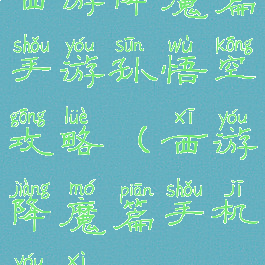 西游降魔篇
shǒu yóu sūn wù kōng
手游孙悟空
gōng lüè xī yóu
攻略（西游
jiàng mó piān shǒu jī
降魔篇手机
yóu xì